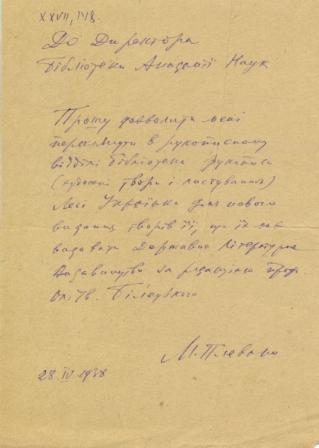 XXVII, 148.
До Директора
Бібліотеки Академії Наук
Прошу дозволити мені
переглянути в рукописному
відділі бібліотеки рукописи
(художні твори і листування)
Лесі Українки для нового
видання творів її, що їх має
видавати Державне Літературне
Видавництво за редакцією проф.
Ол. Ів. Білецького
М. Плевако
28.IV 1938